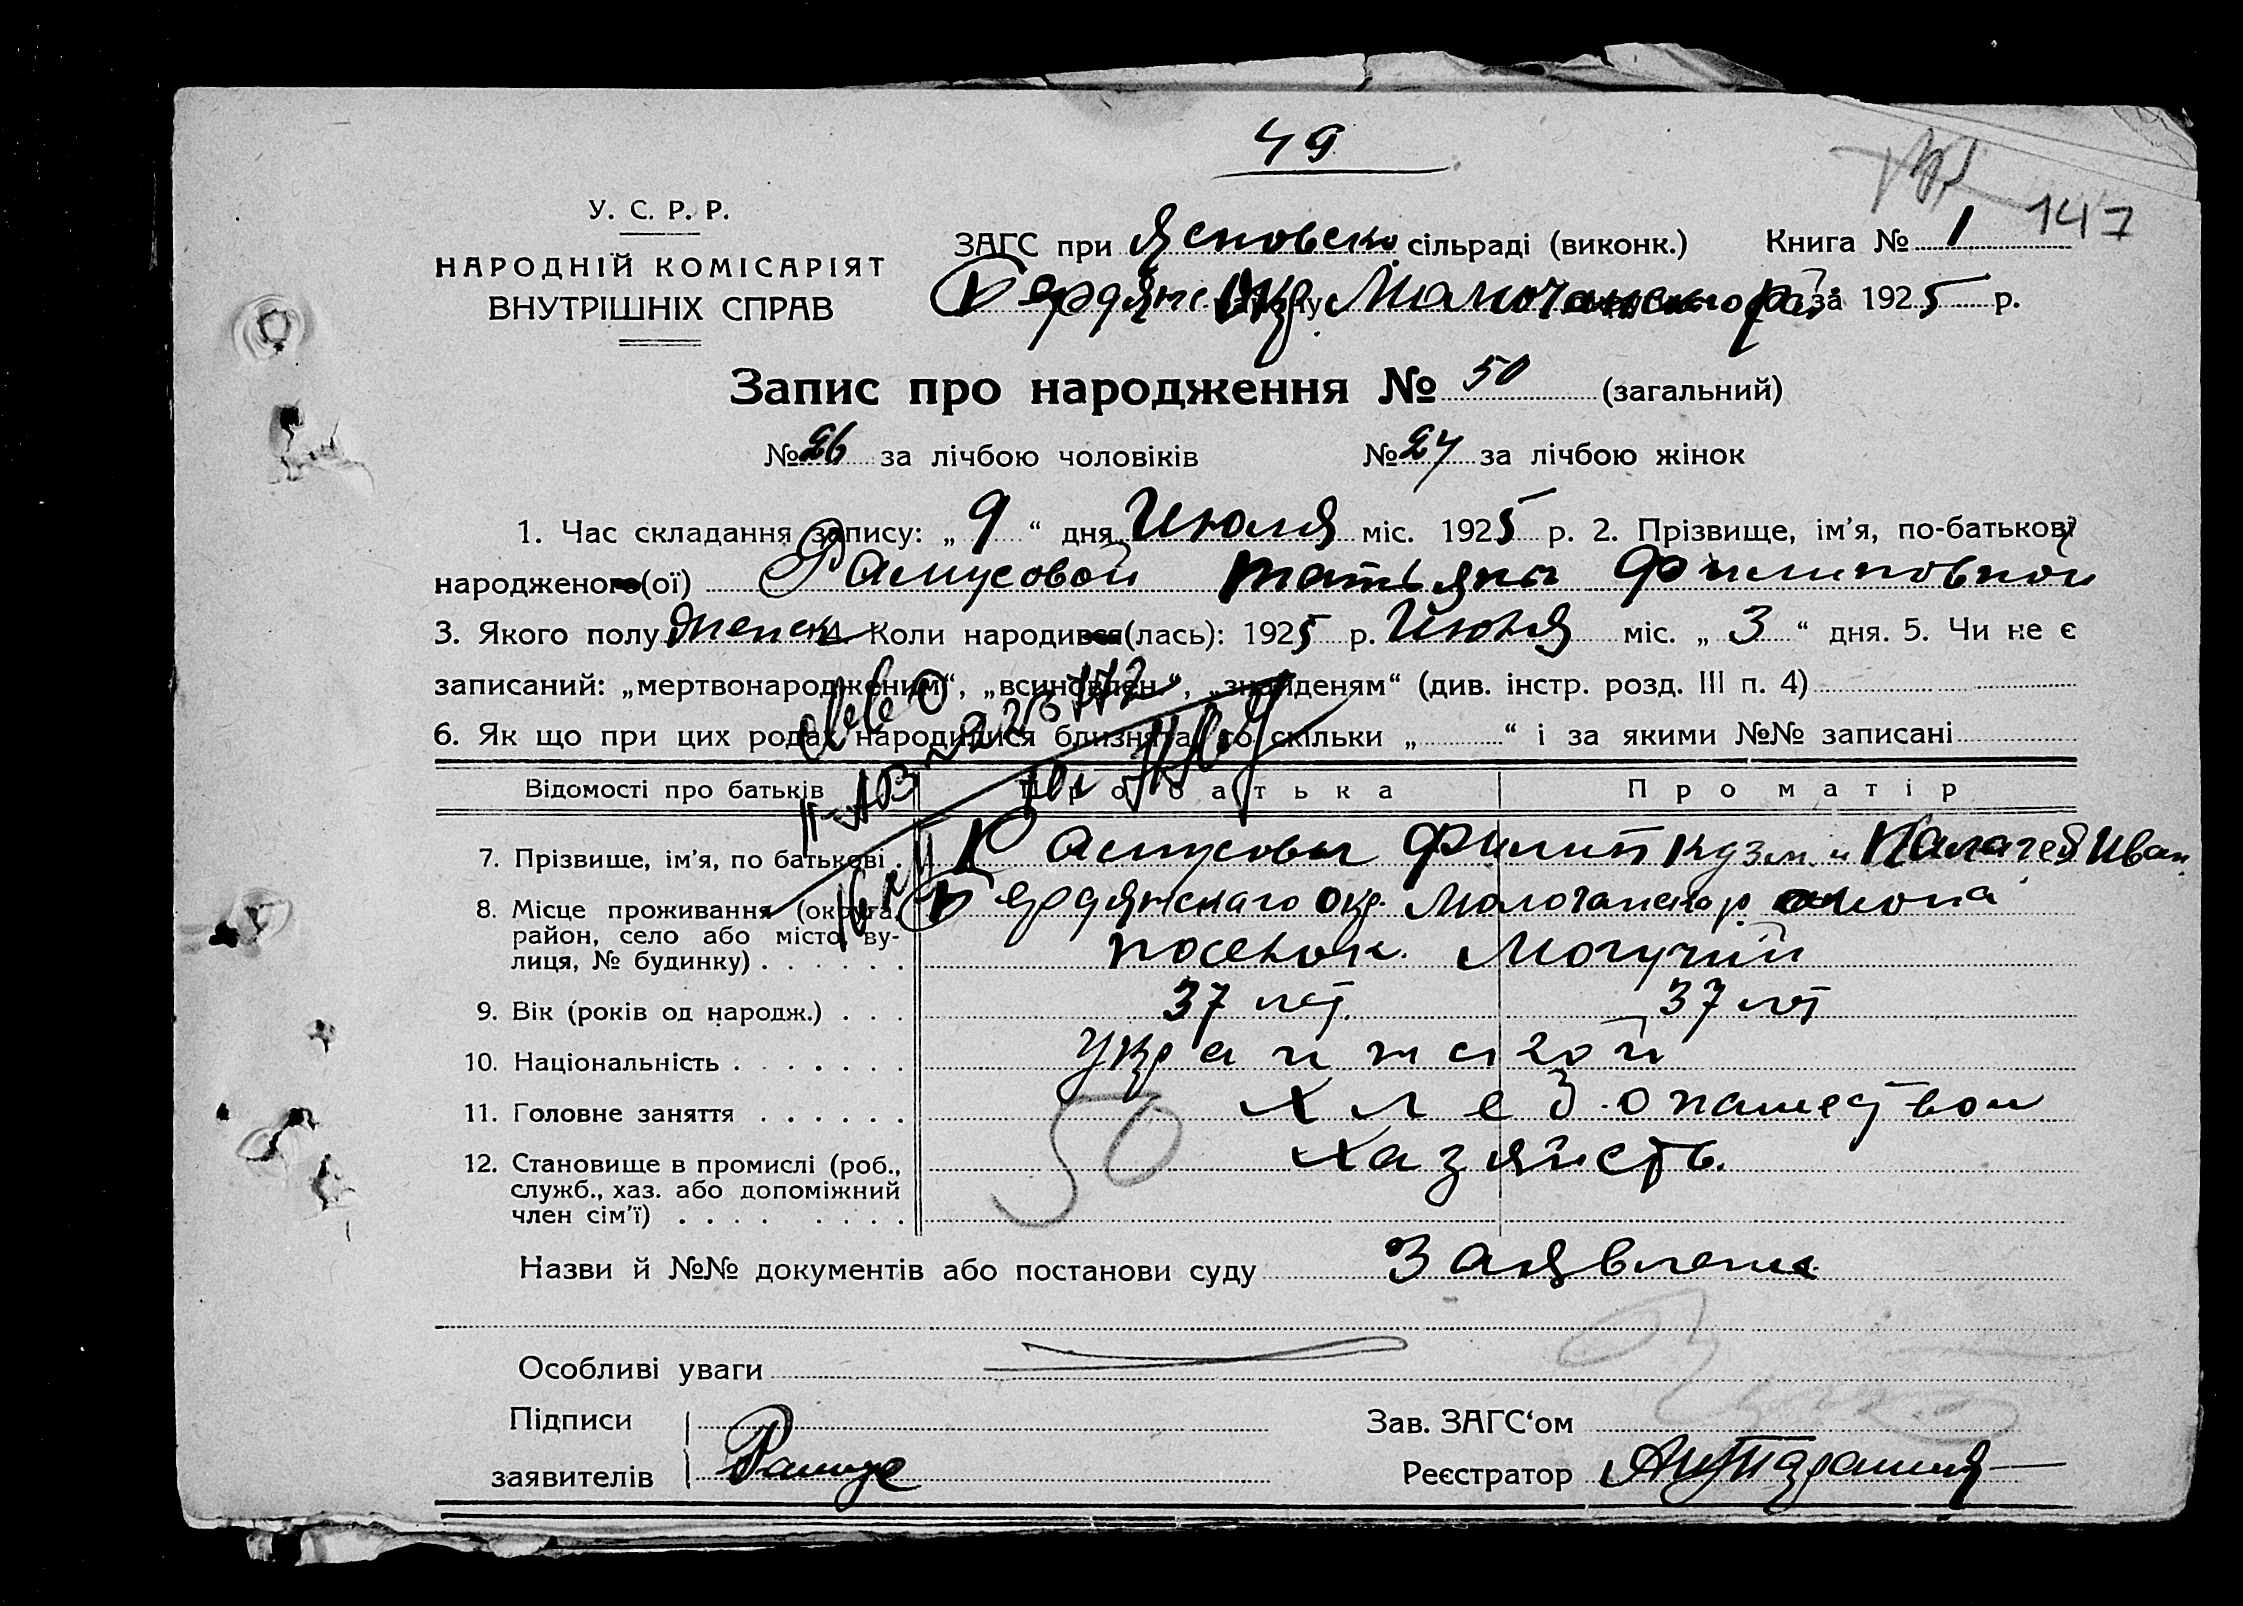 49
147
У. С. Р. Р.
НАРОДНІЙ КОМІСАРІЯТ
ВНУТРІШНІХ СПРАВ
ЗАГС при сільраді (виконк.) Книга № 1
Бердянс Окр Молочанского рай за 1925 р.
Запис про народження № 50 (загальний)
№ 26 за лічбою чоловіків № 24 за лічбою жінок
1. Час складання запису: „ 9 “ дня Июля міс. 1925 р. 2. Прізвище, ім'я, по-батькові
народженого(ої) Рамусовой Татьяны Филиповной
3. Якого полу женск 4. Коли народився(лась): 1925 р. Июля міс. „ 3 “ дня. 5. Чи не є
записаний: „мертвонародженим“, „всиновлен.“, „знайденям“ (див. інстр. розд. III п. 4)
6. Як що при цих родах народилися близнята, то скільки „ “ і за якими №№ записані
Відомості про батьків Про батька Про матір
7. Прізвище, ім'я, по батькові Рамусовы Филип Кузм. и Палагея Иван
8. Місце проживання (округа, Бердянскаго окр. Молочанскаго района
район, село або місто, ву-
лиця, № будинку) поселок Могучий
9. Вік (років од народж.) 37 лет. 37 лет
10. Національність
11. Головне заняття Хлебопашеством
12. Становище в промислі (роб.,
служб., хаз. або допоміжний
член сім'ї)
50
Назви й №№ документів або постанови суду Заявление
Особливі уваги
Підписи Зав. ЗАГС‘ом
заявителів Рамус Реєстратор